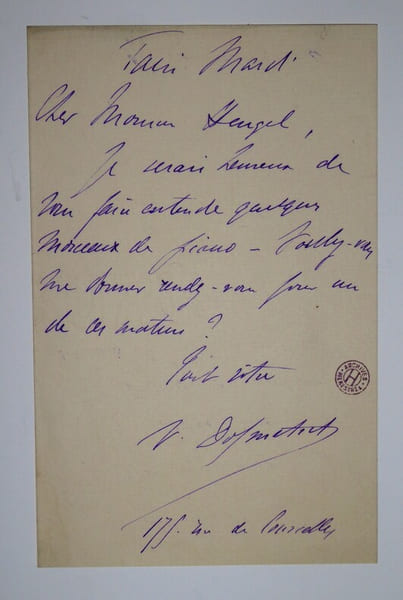 Paris Mardi
Cher Monsieur Heugel,
Je serais heureux de
vous faire entendre quelques
morceaux de piano – Voulez-vous
me donner rendez-vous pour un
de ces matins ?
Tout vôtre
V. Dolmetsch
175. rue de Courcelles
ARCHIVES
H